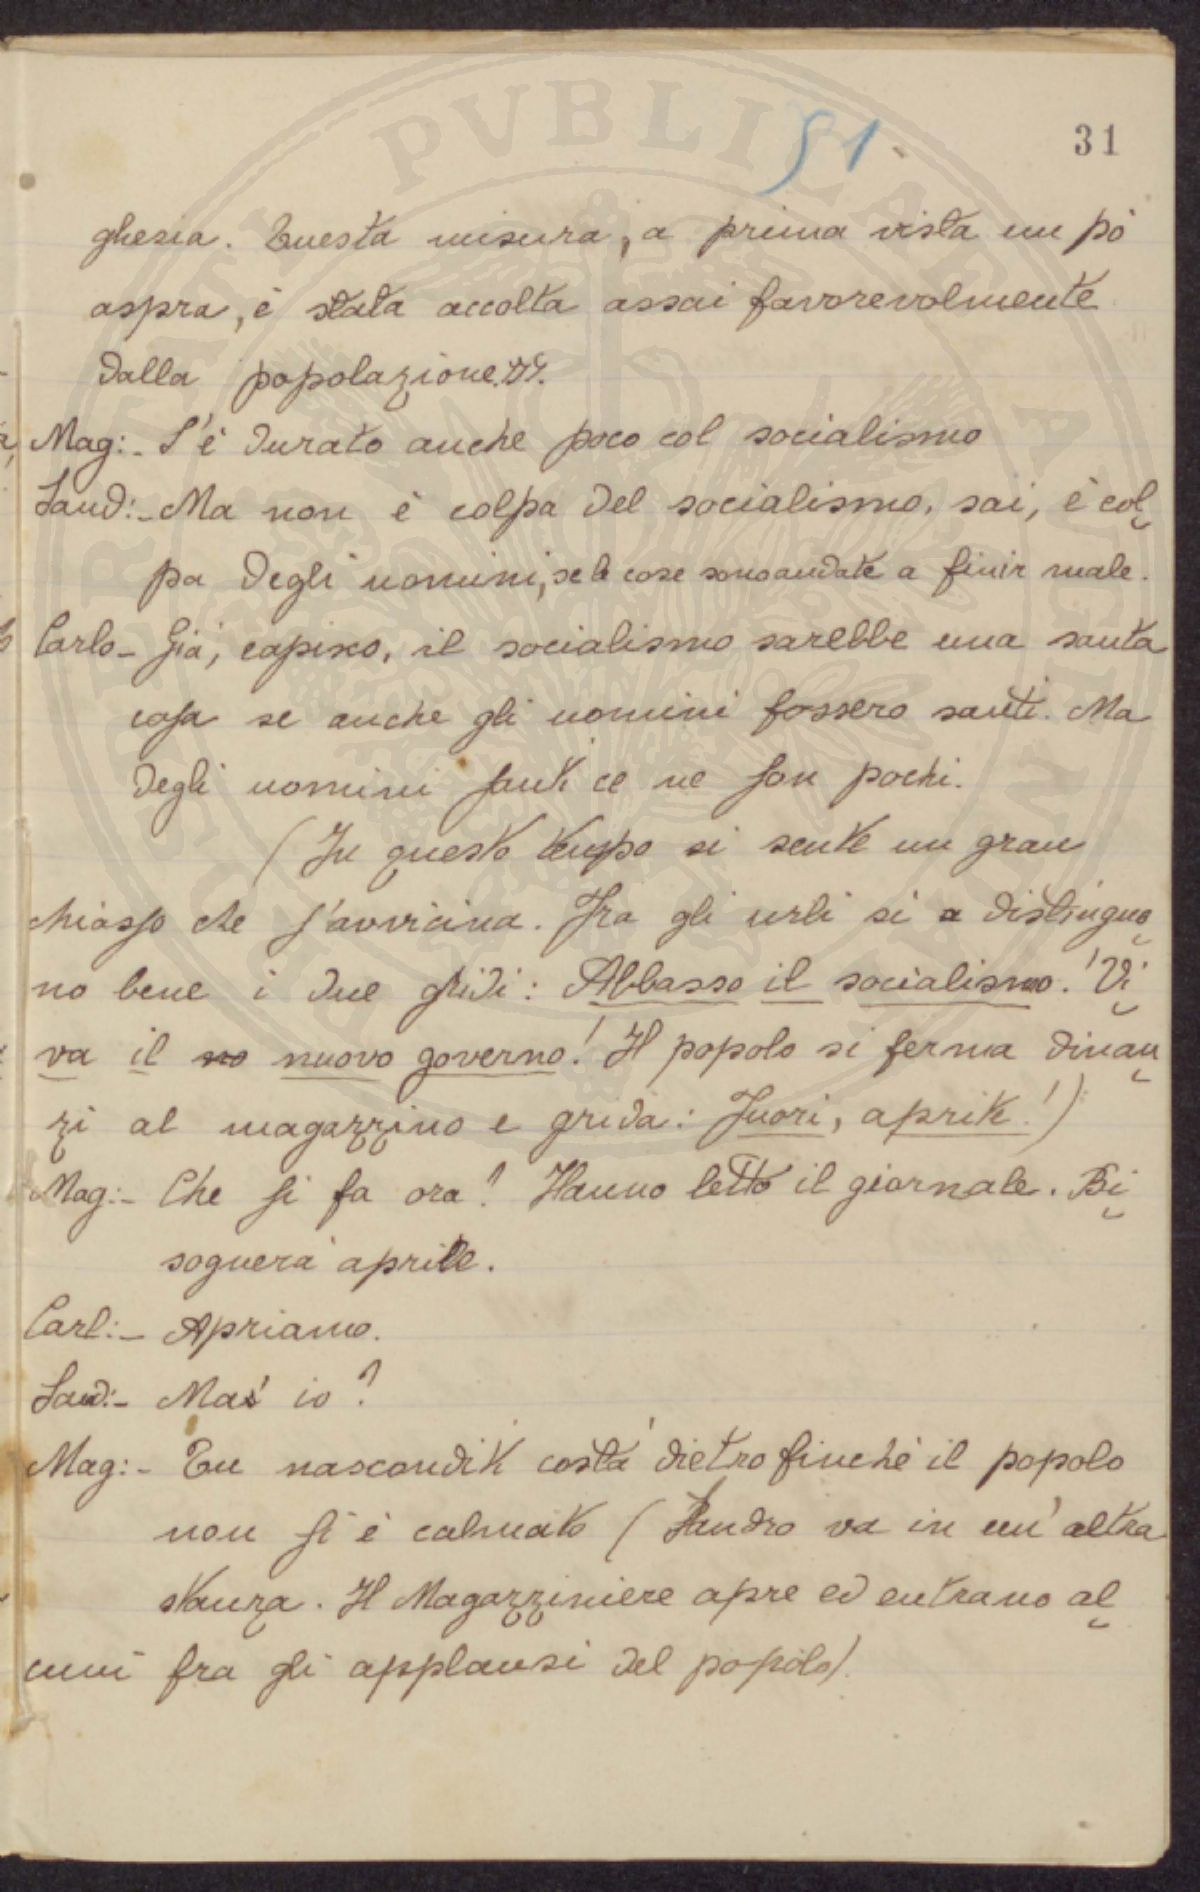 51
31
ghesia. Questa misura, a prima vista un pò
aspra, è stata accolta assai favorevolmente
dalla popolazione.
Mag:- S'è durato anche poco col socialismo
Sand:- Ma non è colpa del socialismo, sai, è col-
pa degli uomini, se le cose sono andate a finir male.
Carlo- Già, capisco, il socialismo sarebbe una santa
cosa se anche gli uomini fossero santi. Ma
degli uomini santi ce ne son pochi.
(In questo tempo si sente un gran
chiasso che s'avvicina. Fra gli urli si distinguo-
no bene i due gridi: Abbasso il socialismo! Vi-
va il no nuovo governo! Il popolo si ferma dinan-
zi al magazzino e grida: Fuori, aprite!)
Mag:- Che si fa ora? Hanno letto il giornale. Bi-
sognerà aprire.
Carl:- Apriamo.
Sand:- Ma io?
Mag:- Tu nasconditi costà dietro finchè il popolo
non si è calmato (Sandro va in un'altra
stanza. Il Magazziniere apre ed entrano al-
cuni fra gli applausi del popolo).
PVBLICAE